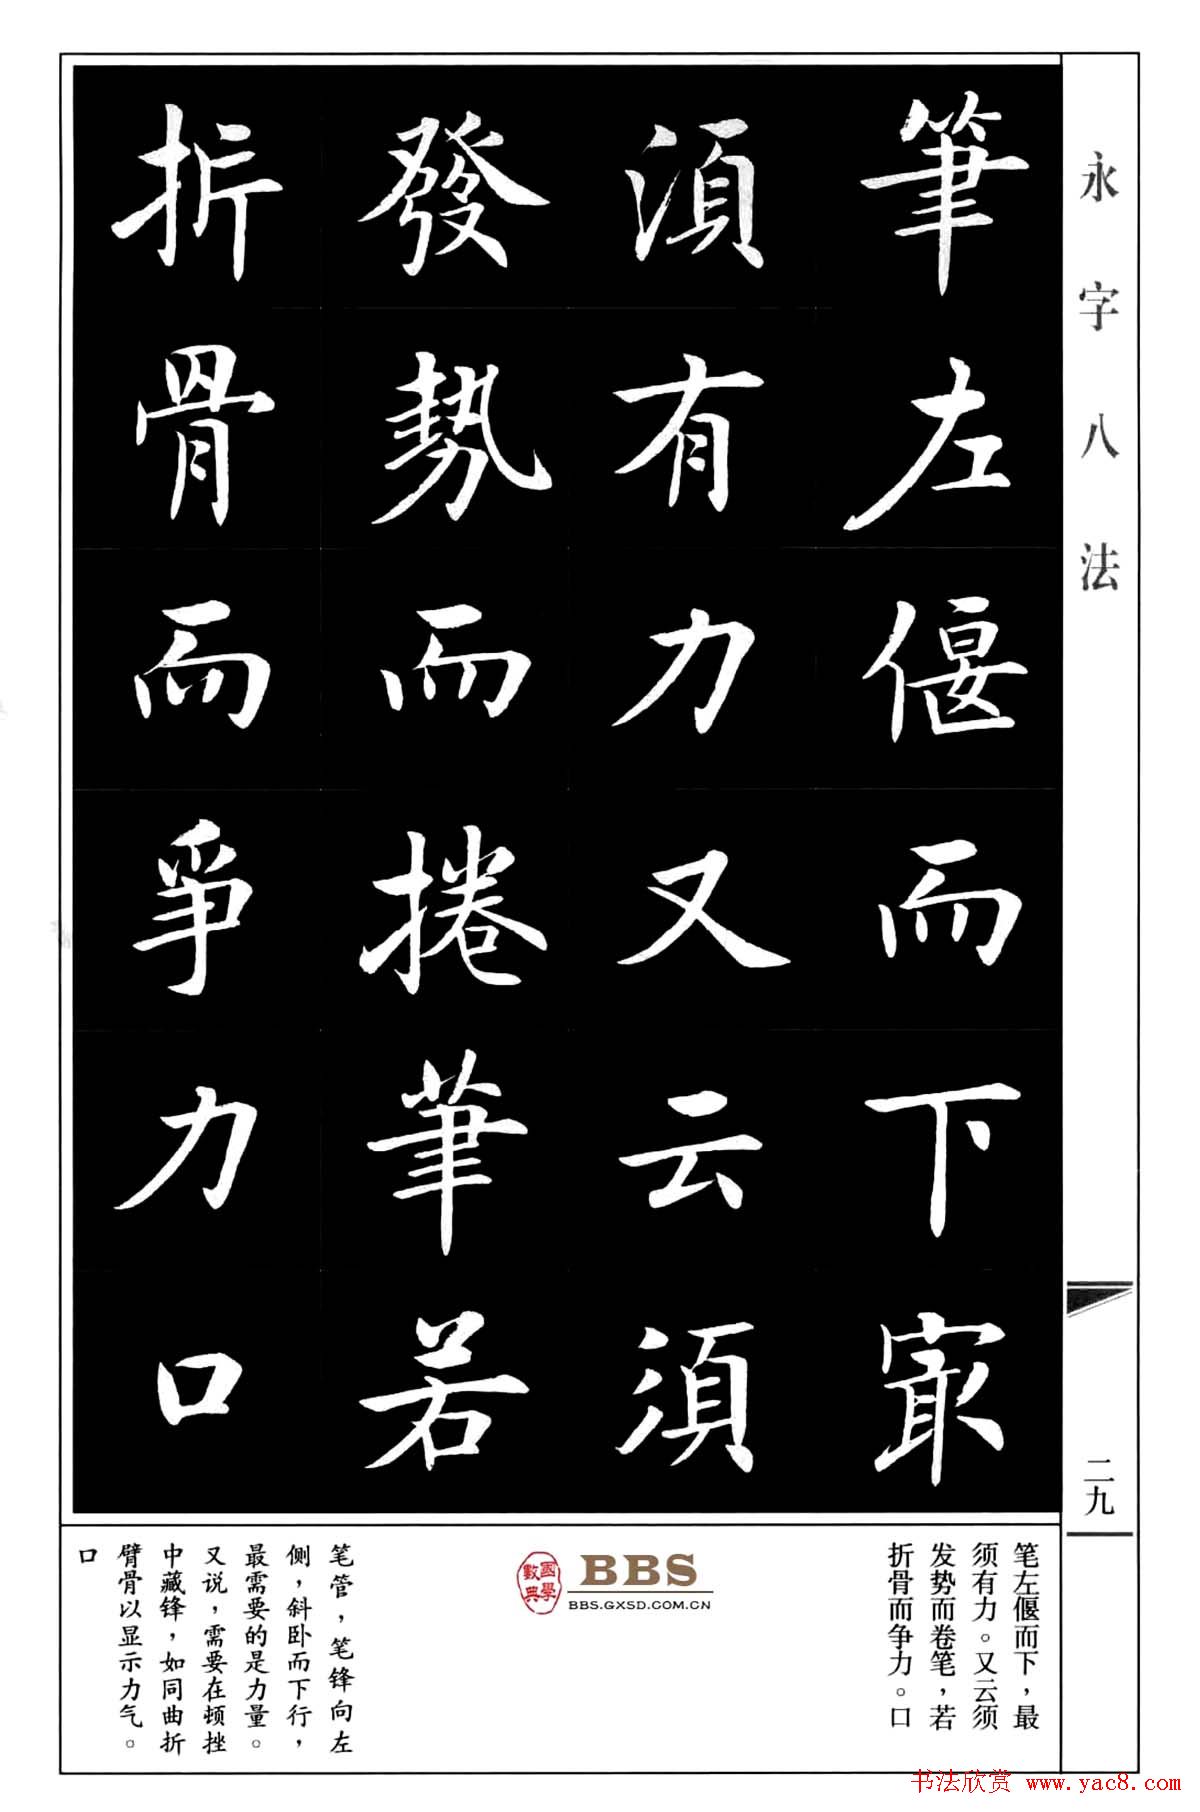 永字八法
二九
筆左偃而下冣
須有力又云須
發勢而捲筆若
折骨而爭力口
笔左偃而下，最
须有力。又云须
发势而卷笔，若
折骨而争力。口
國學
數典
BBS
BBS.GXSD.COM.CN
笔管，笔锋向左
侧，斜卧而下行，
最需要的是力量。
又说，需要在顿挫
中藏锋，如同曲折
臂骨以显示力气。
口
书法欣赏 www.yac8.com